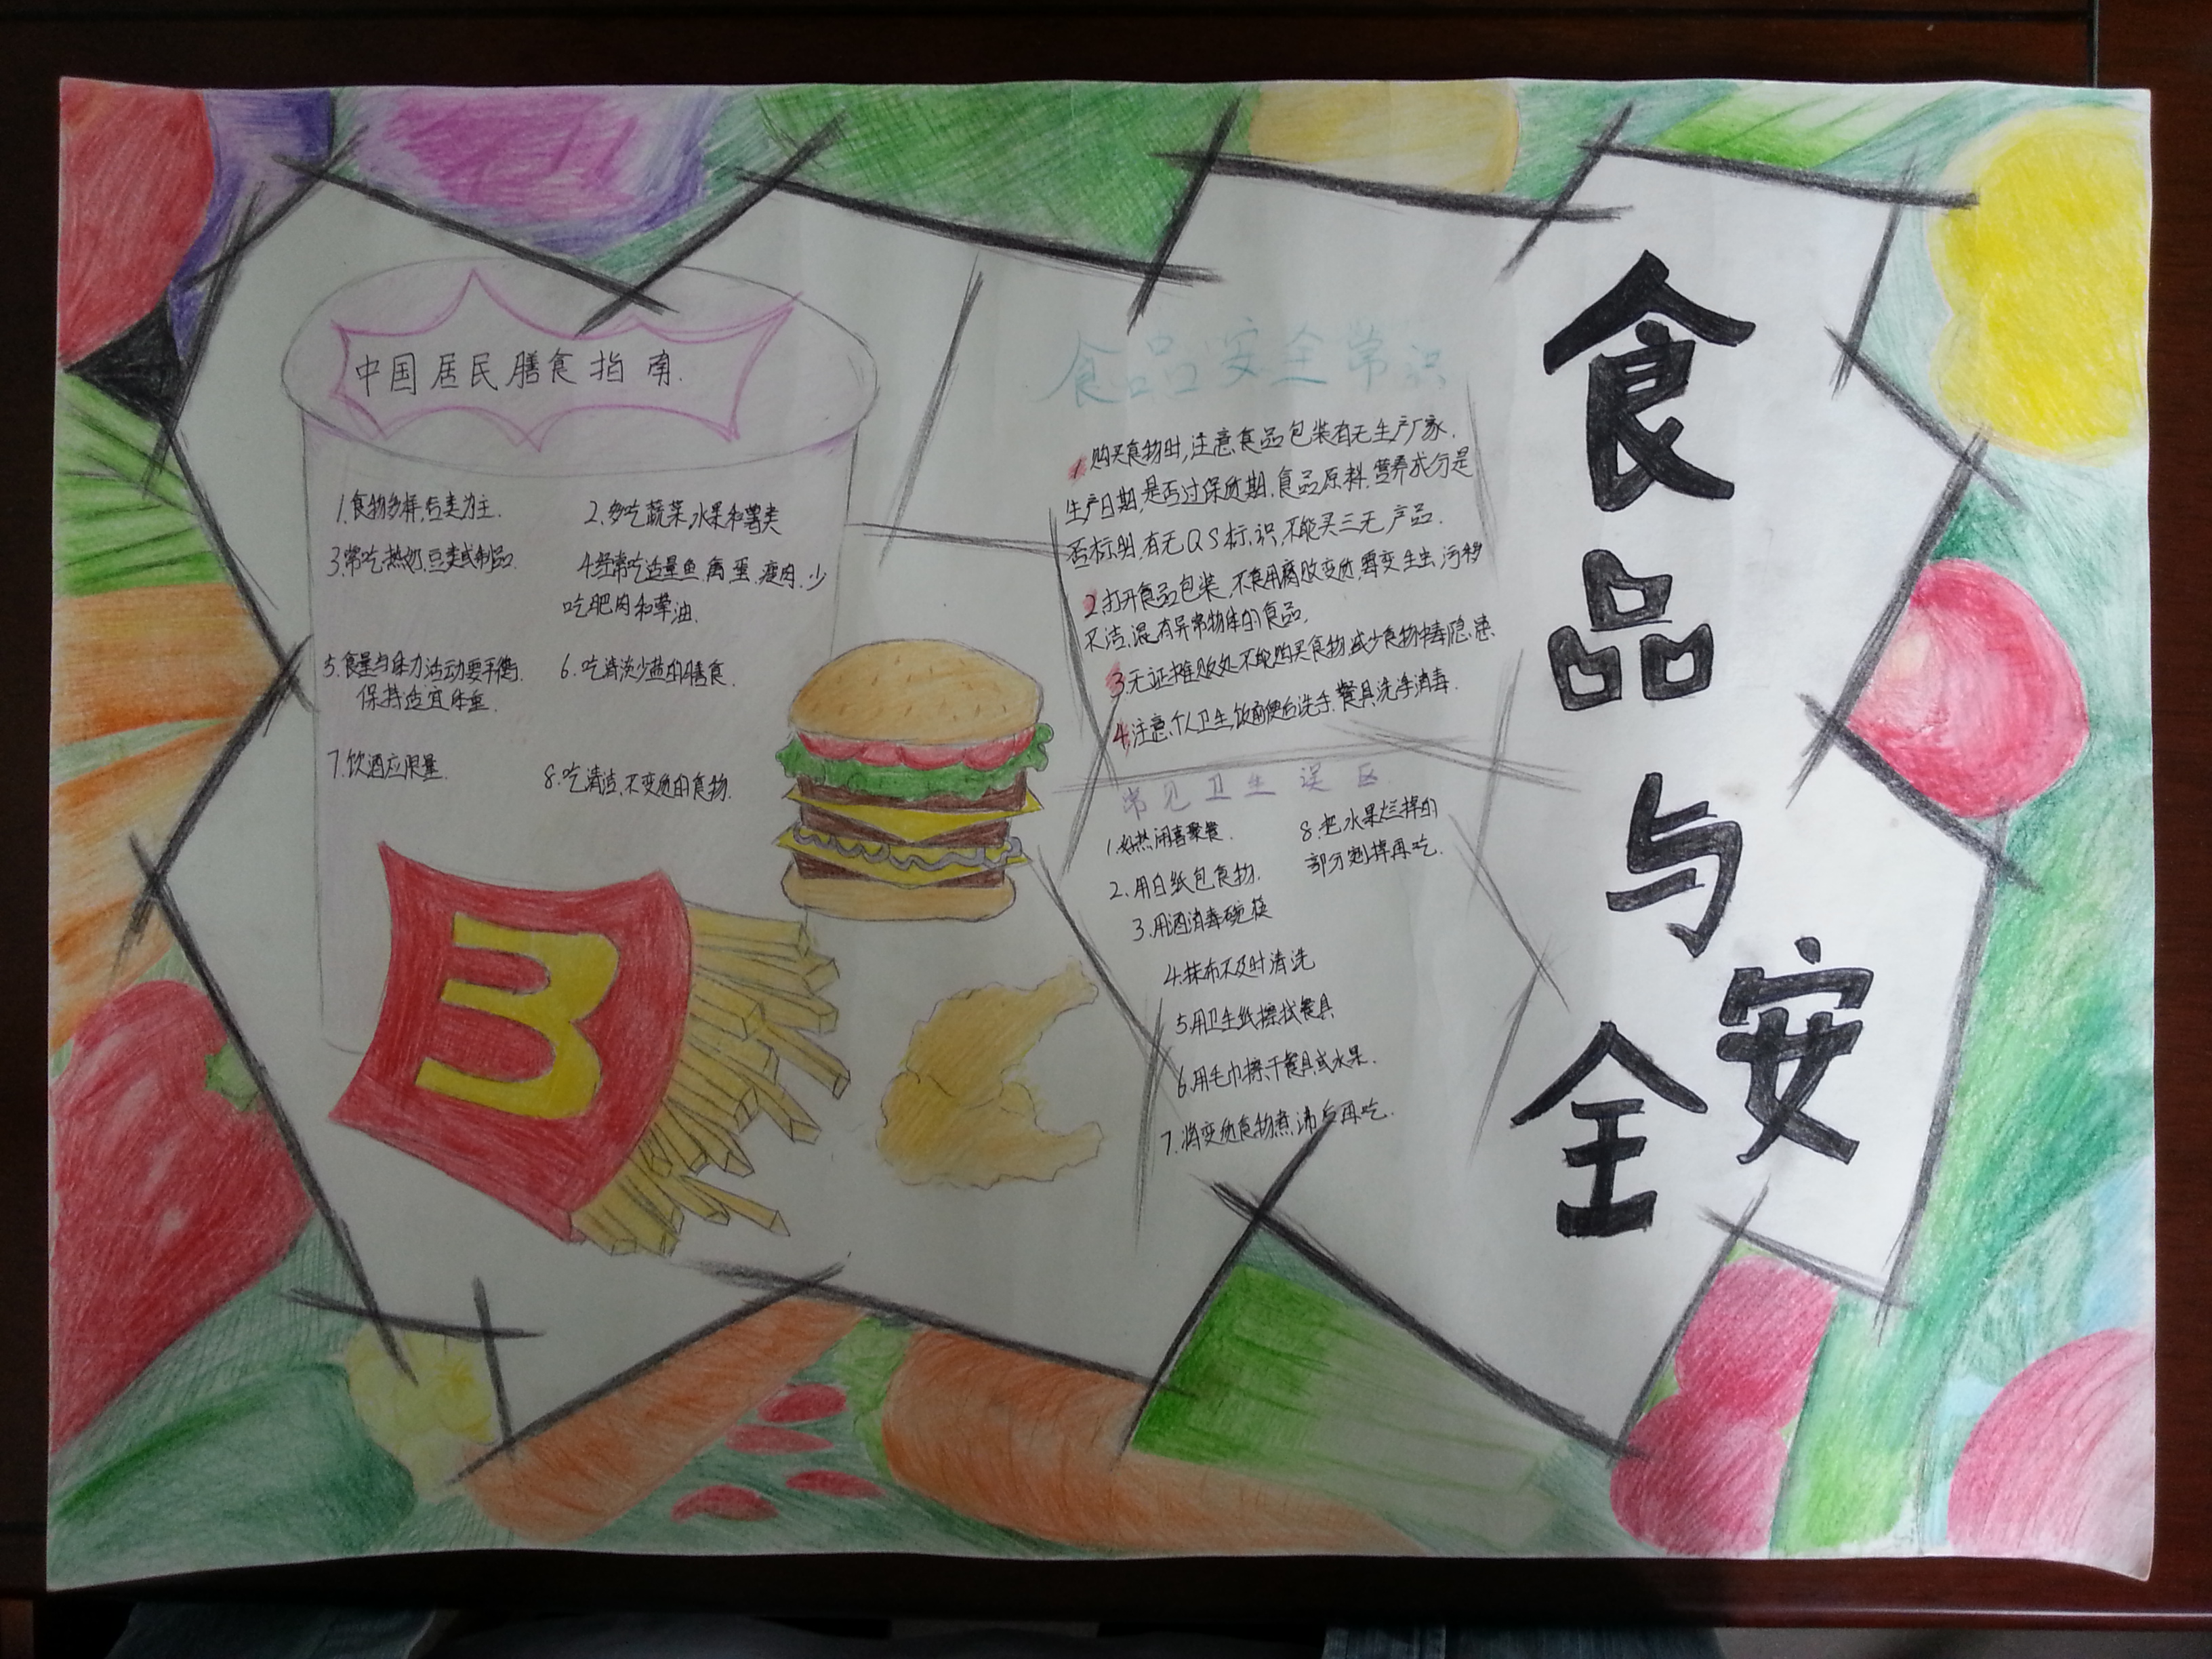 食品与安全
中国居民膳食指南.
1.食物多样,谷类为主.
2.多吃蔬菜,水果和薯类
3.常吃热奶,豆类或制品
4.经常吃适量鱼.禽.蛋.瘦肉.少
吃肥肉和荤油.
5.食量与体力活动要平衡.
保持适宜体重.
6.吃清淡少盐的膳食.
7.饮酒应限量.
8.吃清洁.不变质的食物.
食品安全常识
1.购买食物时,注意食品包装有无生产厂家.
生产日期,是否过保质期.食品原料.营养成分是
否标明,有无QS标识,不能买三无产品.
2.打开食品包装,不食用腐败变质,霉变生虫,污秽
不洁,混有异常物体的食品.
3.无证摊贩处不能购买食物,减少食物中毒隐患.
4.注意个人卫生,饭前便后洗手.餐具洗净消毒.
常见卫生误区
1.好热闹喜聚餐.
2.用白纸包食物.
3.用酒消毒碗筷
4.抹布不及时清洗
5.用卫生纸擦拭餐具
6.用毛巾擦干餐具或水果.
7.将变质食物煮沸后再吃.
8.把水果烂掉的
部分剜掉再吃.